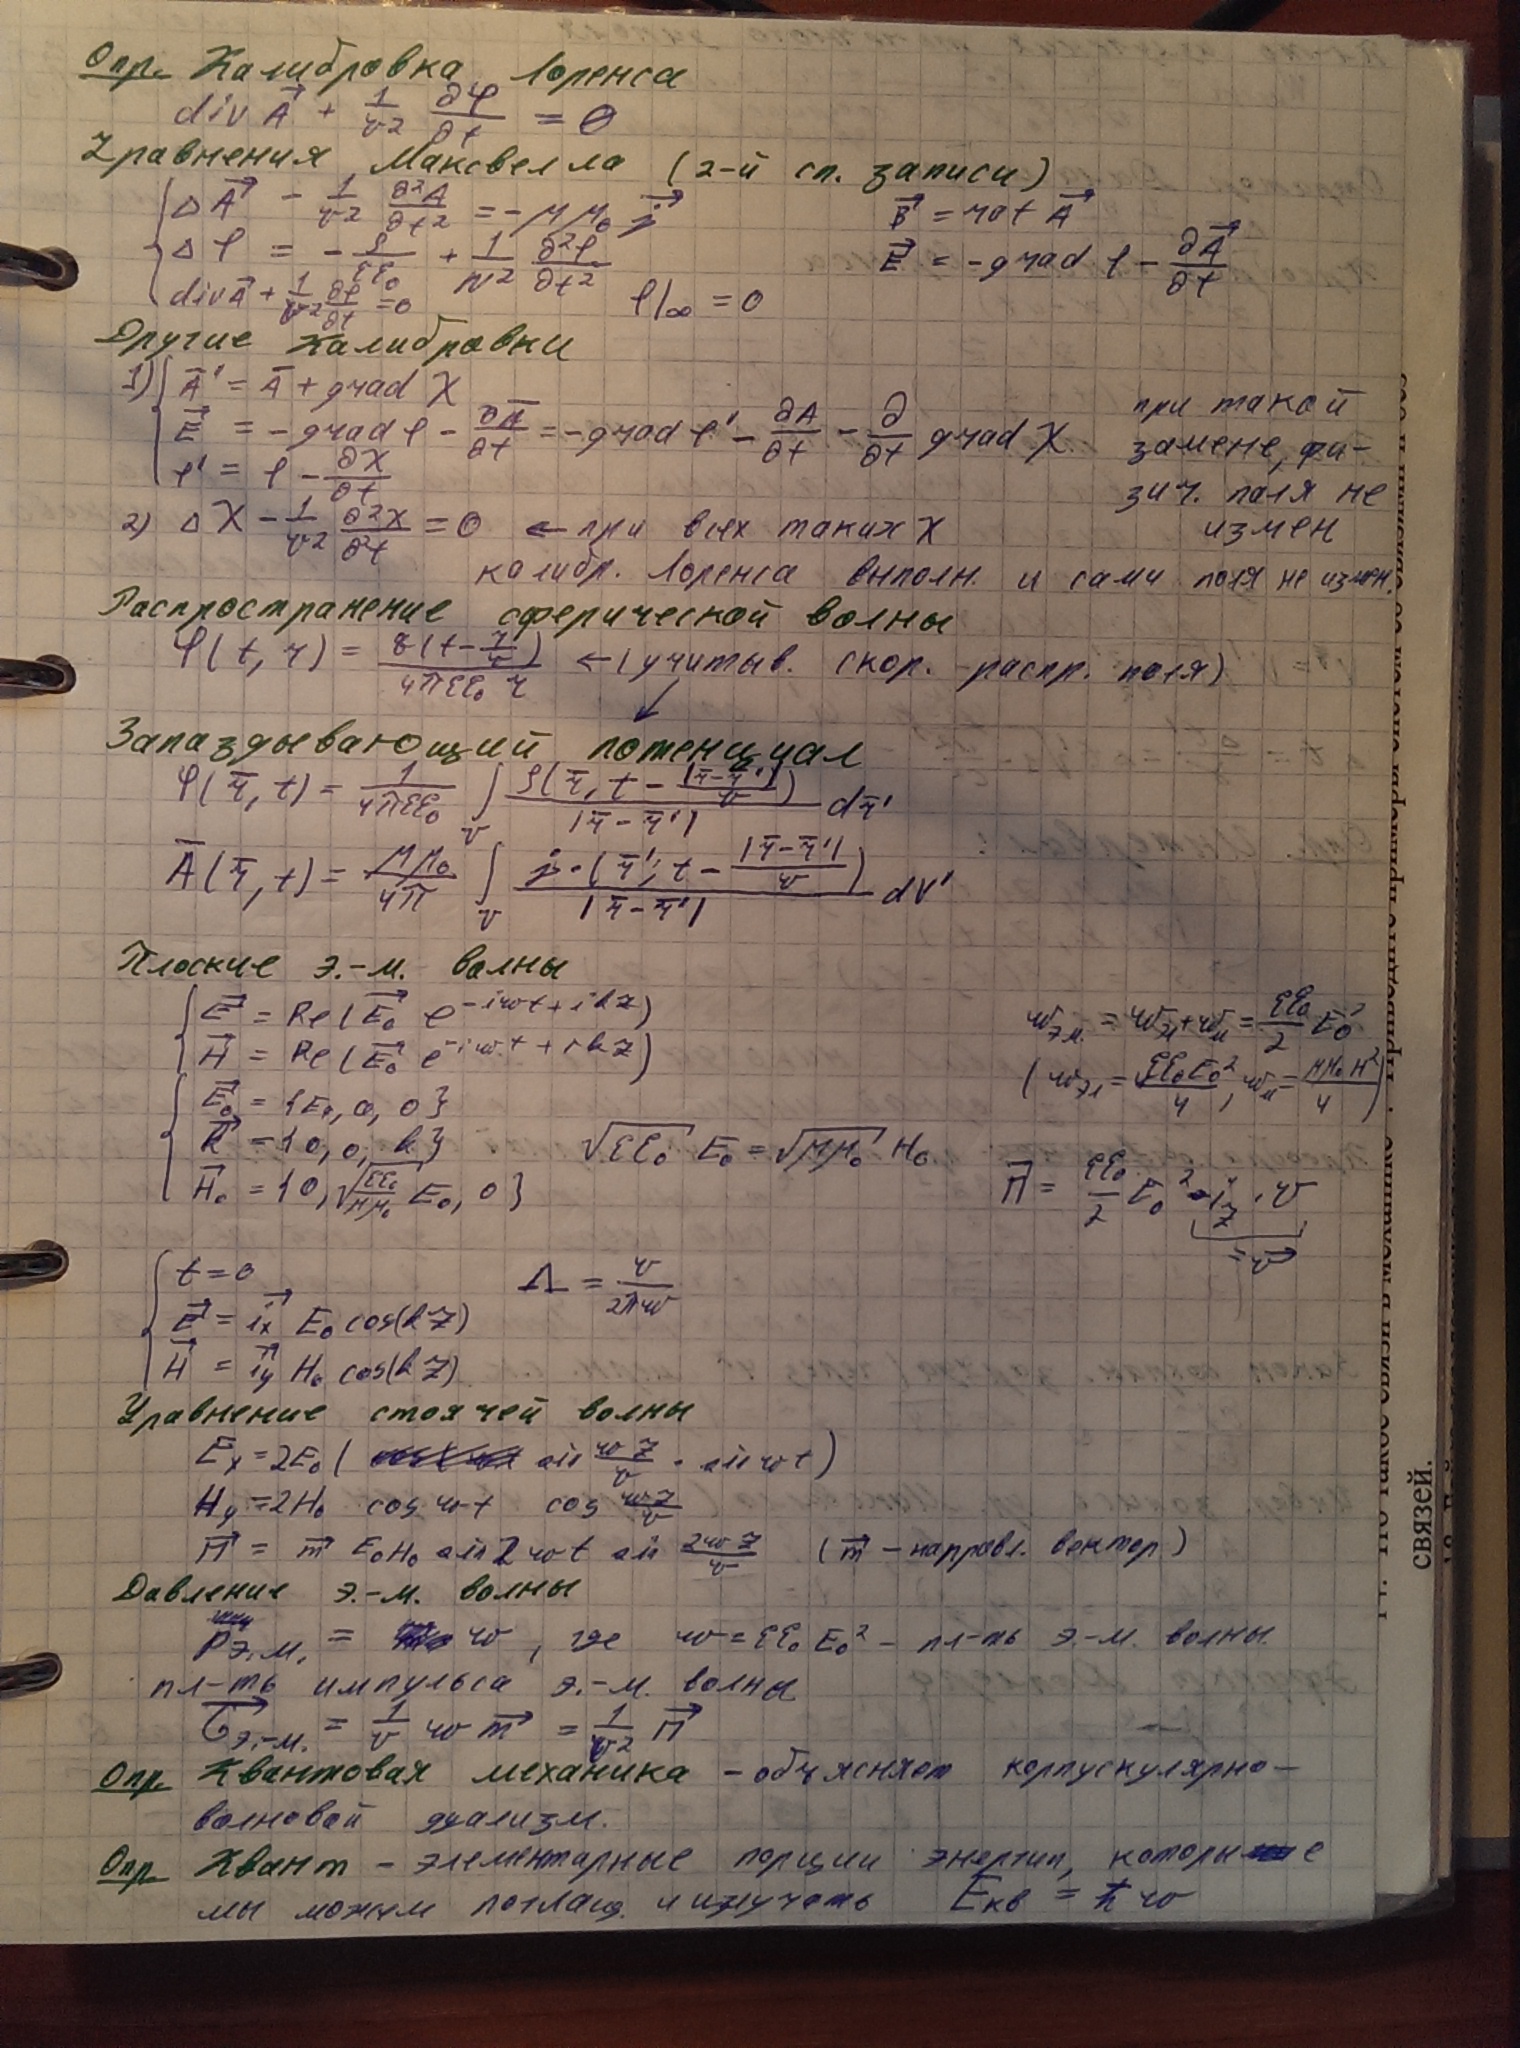 Опр. Калибровка Лоренса
div A⃗ + 1/v² ∂φ/∂t = 0
Уравнения Максвелла (2-й сп. записи)
ΔA⃗ - 1/v² ∂²A/∂t² = -μμ₀ j⃗
B⃗ = rot A⃗
Δφ = -ρ/εε₀ + 1/v² ∂²φ/∂t²
E⃗ = -grad φ - ∂A⃗/∂t
div A⃗ + 1/v² ∂φ/∂t = 0
φ|∞ = 0
Другие калибровки
1) A̅' = A̅ + grad χ
E⃗ = -grad φ - ∂A̅/∂t = -grad φ' - ∂A/∂t - ∂/∂t grad χ
φ' = φ - ∂χ/∂t
при такой
замене, фи-
зич. поля не
измен
2) Δχ - 1/v² ∂²χ/∂²t = 0 ← при всех таких χ
калибр. Лоренса выполн. и сами поля не измен.
Распространение сферической волны
φ(t, r) = q(t - r/v)/4πεε₀ r ← (учитыв. скор. распр. поля)
Запаздывающий потенциал
φ(r̅, t) = 1/4πεε₀ ∫v ρ(r̅, t - |r̅-r̅'|/v)/|r̅-r̅'| dr̅'
A̅(r̅, t) = μμ₀/4π ∫v j·(r̅', t - |r̅-r̅'|/v)/|r̅-r̅'| dV'
Плоские э.-м. волны
E⃗ = Re(E₀⃗ e^(-iωt+ikz))
H⃗ = Re(E₀⃗ e^(-iωt+ikz))
wэм. = wэл + wм = εε₀/2 E₀²
(wэл = εε₀E₀²/4, wм = μμ₀H²/4)
E₀⃗ = {E₀, 0, 0}
k⃗ = {0, 0, k}
H₀⃗ = {0, √(εε₀/μμ₀) E₀, 0}
√(εε₀) E₀ = √(μμ₀) H₀
П⃗ = εε₀/2 E₀² i⃗z · v
= v⃗
t = 0
E⃗ = ix⃗ E₀ cos(kz)
H⃗ = iy⃗ H₀ cos(kz)
Λ = v/2πω
Уравнение стоячей волны
Ex = 2E₀( sin ωz/v · sin ωt)
Hy = 2H₀ cos ωt cos ωz/v
П⃗ = m⃗ E₀H₀ sin 2ωt sin 2ωz/v (m⃗ - направл. вектор)
Давление э.-м. волны
Pэ.м. = w, где w = εε₀ E₀² - пл-ть э.-м. волны.
пл-ть импульса э.-м. волны
G⃗э.-м. = 1/v w m⃗ = 1/v² П⃗
Опр. Квантовая механика - объясняет корпускулярно-
волновой дуализм.
Опр. Квант - элементарные порции энергии, которые
мы можем поглащ. и излучать Eкв = ħω
связей.